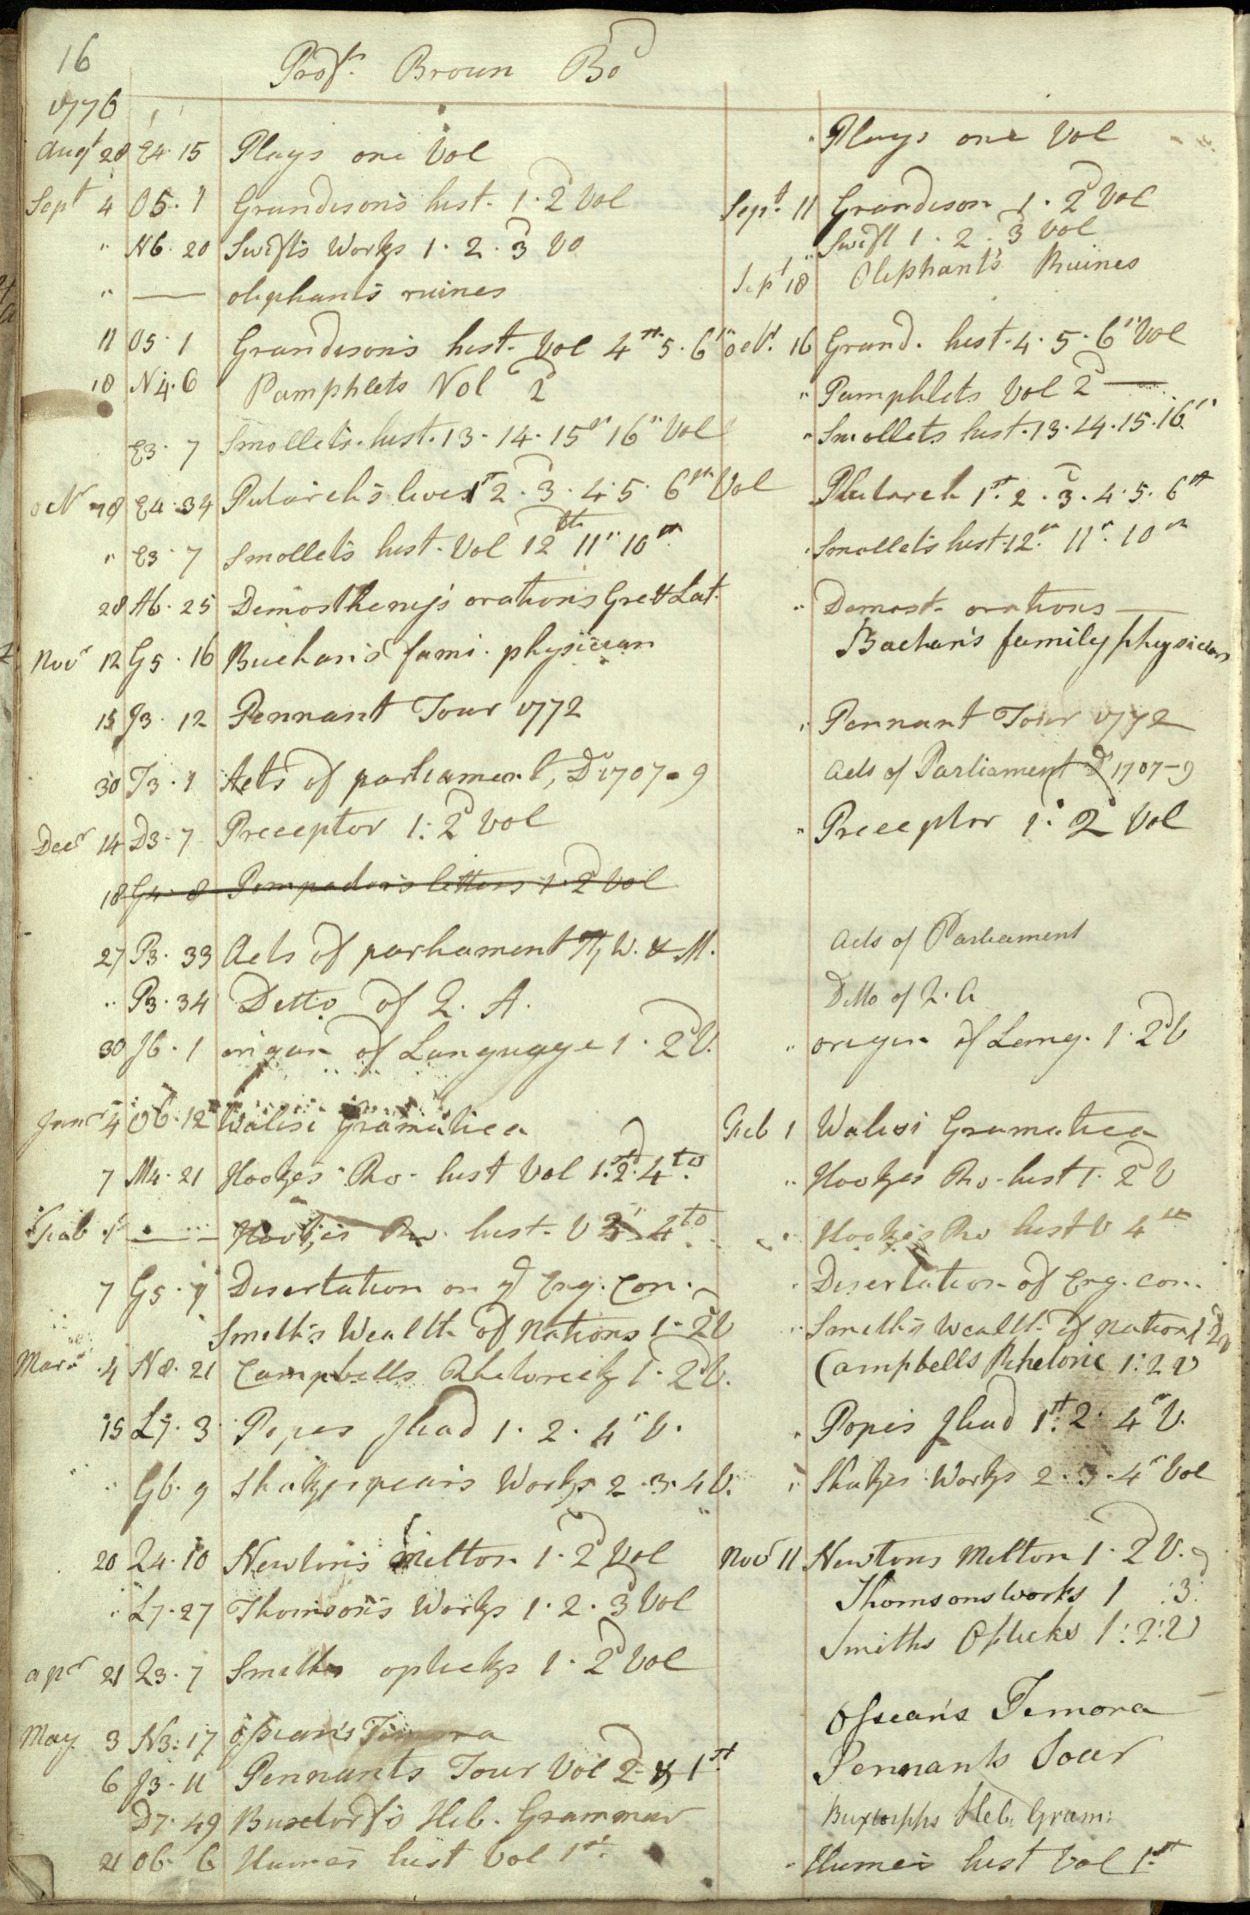 16
Profr. Brown Bod
1776
Augt 28 E4. 15 Plays one Vol Plays one Vol
Sept 4 O5. 1 Grandison's hist. 1. 2d Vol Sept. 11 Grandison 1. 2d Vol
" N6. 20 Swift's Works 1. 2. 3d Vo Swift 1. 2. 3d Vol
" — oliphant's ruines Sept 18 Oliphant's Ruines
11 O5. 1 Grandison's hist. Vol 4th 5. 6th Octr. 16 Grand. hist. 4. 5. 6th Vol
18 N4. 6 Pamphlets Vol 2d " Pamphlets Vol 2d —
E3. 7 Smollets. hist. 13. 14. 15th 16th Vol " Smollets hist. 13. 14. 15. 16th
Octr 18 E4. 34 Plutarch's lives 1st 2. 3. 4. 5. 6th Vol Plutarch 1st. 2. 3. 4. 5. 6th
" E3. 7 Smollets hist. Vol 12th 11th 10th Smollets hist. 12th 11th. 10th
28 A6. 25 Demostheny's orations Gre & Lat. " Demost. orations —
Novr 12 G5. 16 Buchan's fami. physician Bachan's family physician
15 J3. 12 Pennant Tour 1772 " Pennant Tour 1772
30 T3. 1 Acts of parliament, Do 1707-9 Acts of Parliament Do 1707-9
Decr 14 D3. 7 Preceptor 1: 2d Vol " Preceptor 1. 2d Vol
18 G4. 8 Pompador's letters 1. 2d Vol
27 P3. 33 Acts of parliament W. & M. Acts of Parliament
" P3. 34 Ditto of Q. A. Ditto of Q. A
30 J6. 1 origin of Language 1. 2d V. " origin of Lang. 1. 2d V
Janr 4 O6. 12 Walisi Gramatica Feb 1 Walisi Gramatica
7 M4. 21 Hookes Ro. hist Vol 1st. 2d. 4to. " Hookes Ro. hist 1. 2d V
Feb 1st — Hook's Ro. hist. V 4to Hookes Ro hist V 4th
7 G5. 9 Disertation on ye Eng. Con. Disertation of Eng. con.
Smith's Wealth of Nations 1. 2d V " Smith's Wealth of nations 1 2d V
Mar 4 N8. 21 Campbells Rhetorick 1. 2d V. Campbells Rhetoric 1: 2 V
15 L7. 3 Popes Iliad 1. 2. 4th V. " Popes Iliad 1st. 2. 4th V.
" G6. 9 Shakespears Works 2. 3. 4 V. " Shakes Works 2. 3. 4th Vol
20 Q4. 10 Newton's Milton 1. 2d Vol Novr 11 Newtons Milton 1. 2d V.
" L7. 27 Thomson's Works 1. 2. 3d Vol Thomsons Works 1 :3:
Apr 21 Q3. 7 Smiths opticks 1. 2d Vol Smiths Opticks 1:2:
May 3 N3. 17 Ossean's Timora Ossean's Temora
6 J3. 11 Pennants Tour Vol 2d & 1st Pennants Tour
D7. 49 Buxtorf's Heb. Grammar Buxtorphs Heb. Gram:
21 O6. 6 Humes hist Vol 1st. Humes hist Vol 1st